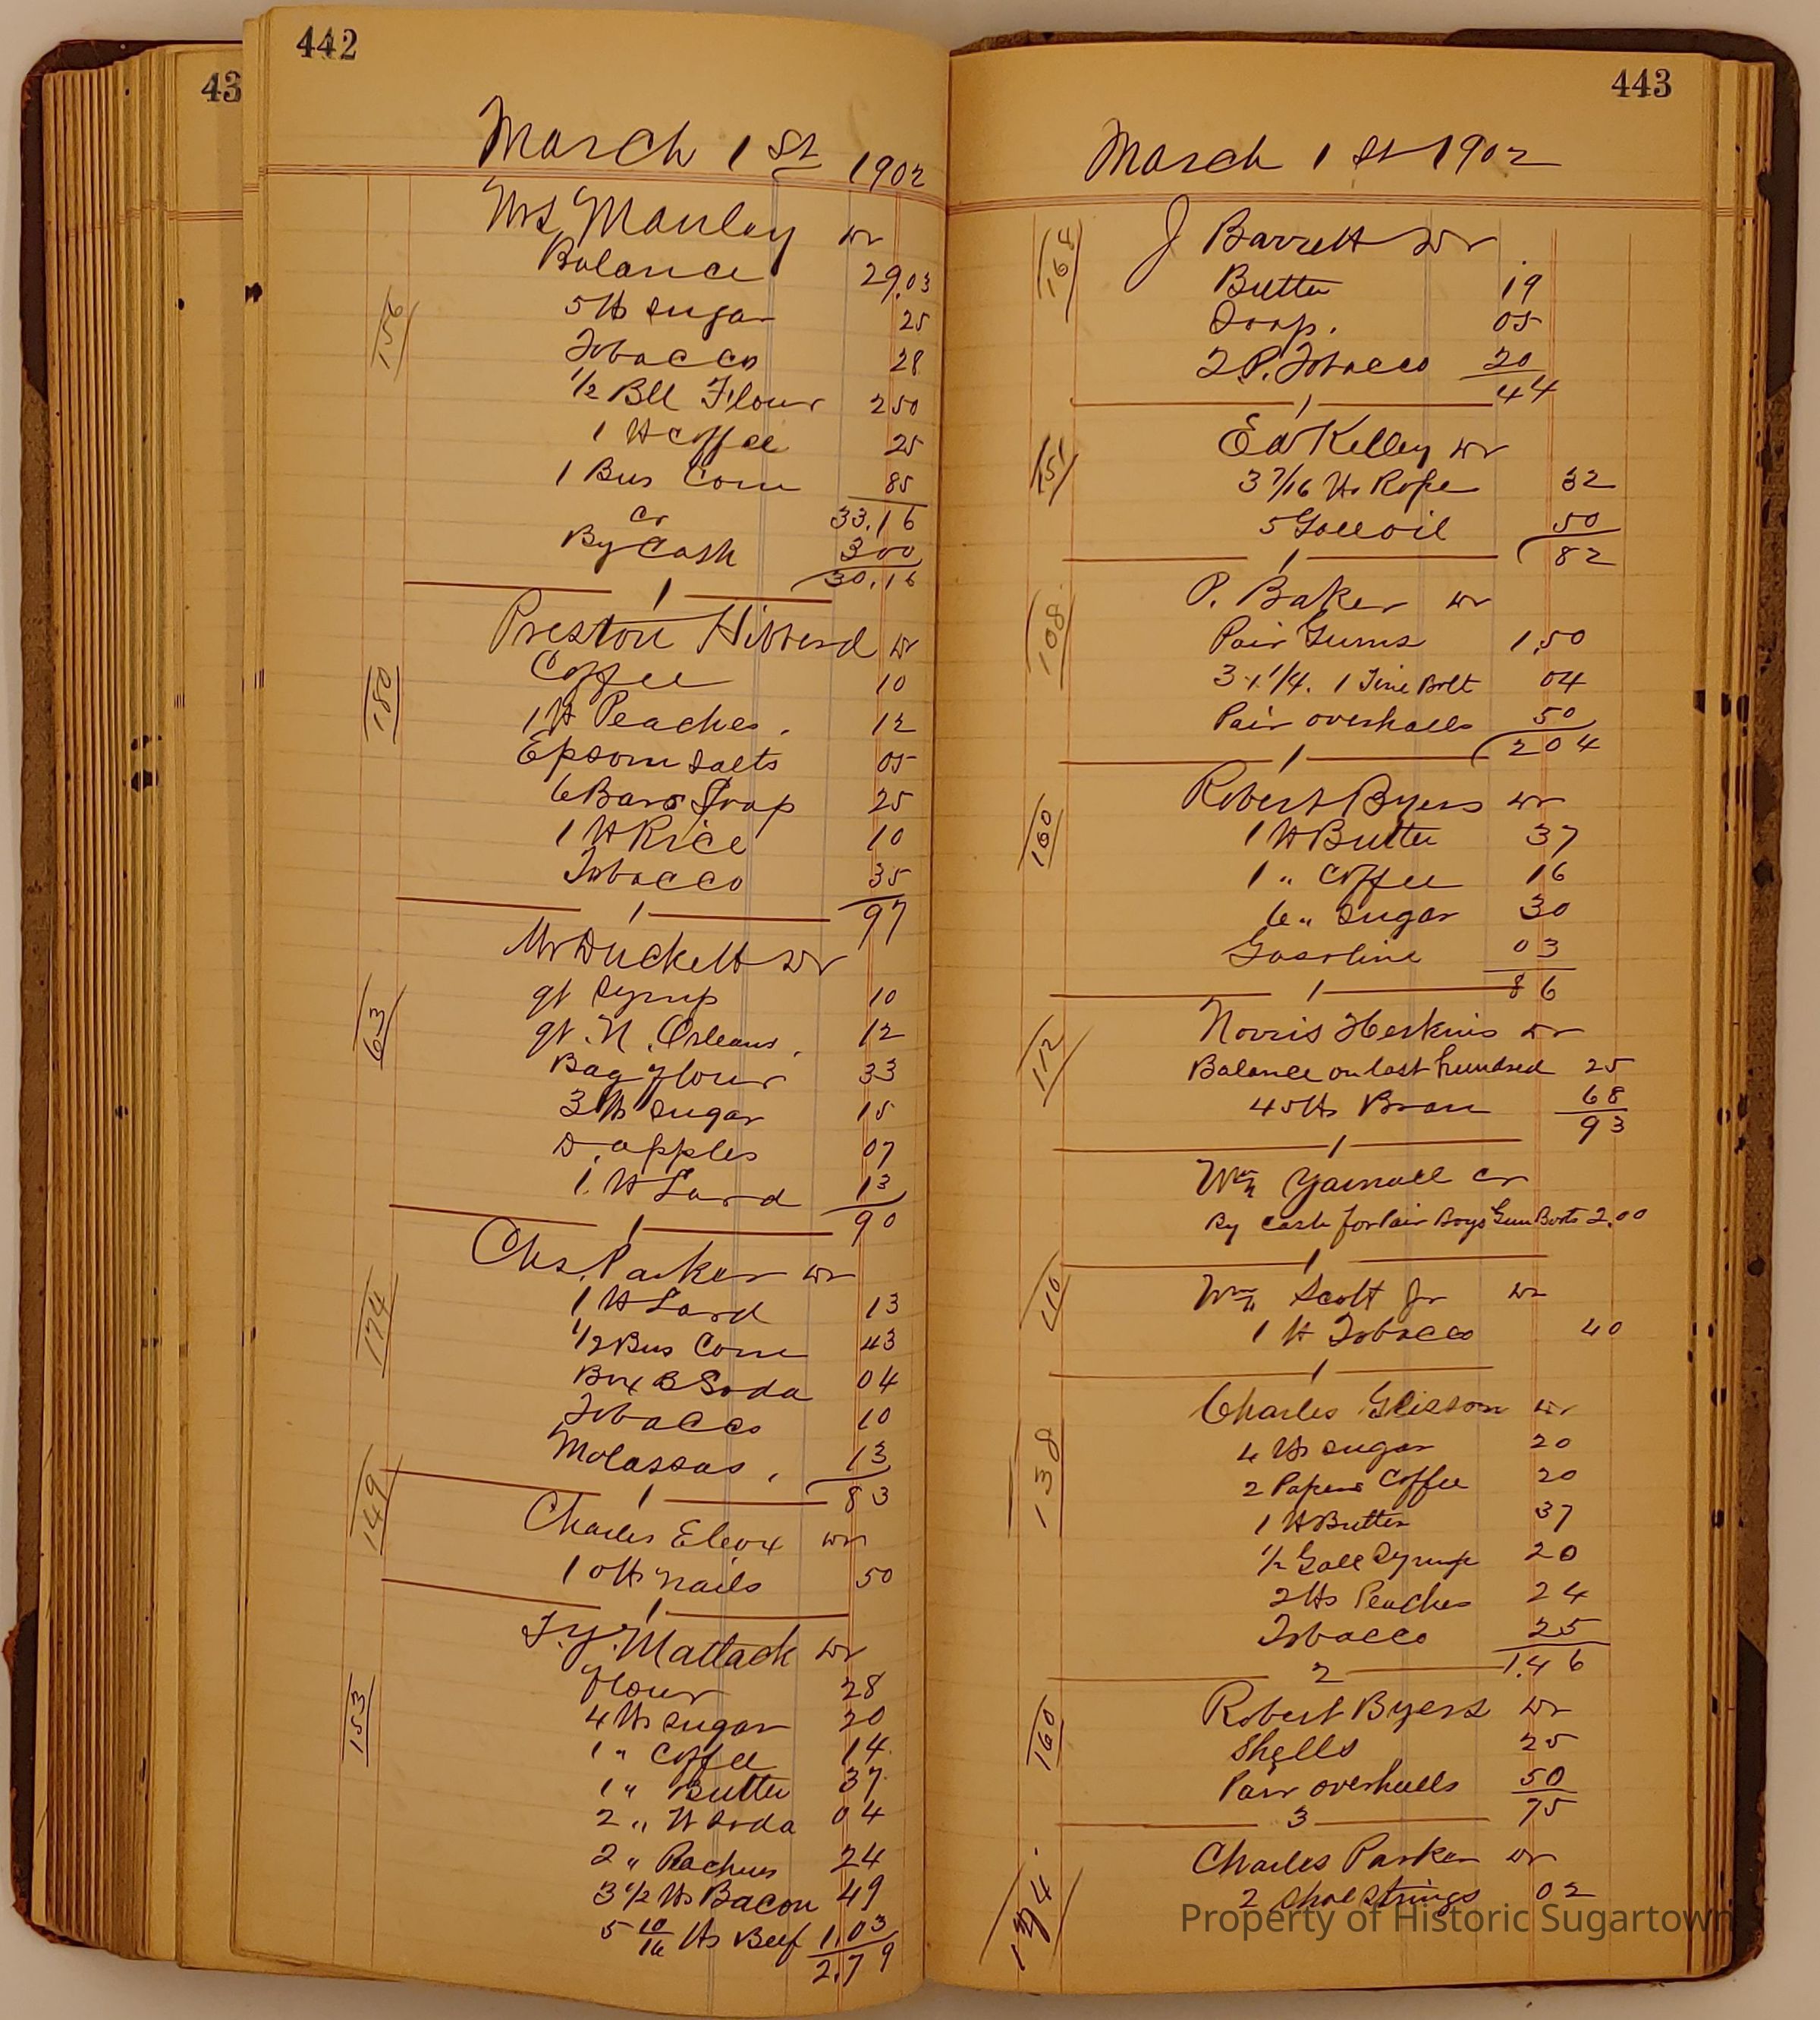 442
43
March 1 St 1902
Mrs Manley Dr
Balance 29.03
156
5 lb Sugar 25
Tobacco 28
1/2 Bll Flour 2 50
1 lb Coffee 25
1 Bus Corn 85
Cr 33.16
By Cash 3 00
30.16
1
Preston Hibberd Dr
Coffee 10
180
1 lb Peaches. 12
Epsom Salts 05
6 Bars Soap 25
1 lb Rice 10
Tobacco 35
1 97
Mr Duckett Dr
qt Syrup 10
63
qt. N. Orleans. 12
Bag flour 33
3 lbs Sugar 15
D. apples 07
1 lb Lard 13
1 90
Chs. Parker Dr
1 lb Lard 13
174
1/2 Bus Corn 43
Box B Soda 04
Tobacco 10
Molassas. 13
1 83
149
Charles Dr
10 lbs nails 50
1
T. Y. Mattack Dr
flour 28
153
4 lbs Sugar 20
1 " Coffee 14
1 " Butter 37
2 " W Soda 04
2 " Peaches 24
3 1/2 lbs Bacon 49
5 10/16 lbs Beef 1.03
2.79
443
March 1 St 1902
164
J Barrett Dr
Butter 19
Soap. 05
2 P. Tobacco 20
1 44
151
Ed Kelley Dr
3 7/16 lbs Rope 32
5 Gall oil 50
1 82
108
P. Baker Dr
Pair Gums 1.50
3 x 1/4. 1 Tire Bolt 04
Pair overhalls 50
1 2 04
160
Robert Byers Dr
1 lb Butter 37
1 " Coffee 16
6 " Sugar 30
Gasoline 03
1 86
112
Norris Heskins Dr
Balance on last hundred 25
45 lbs Bran 68
93
1
Wm Yarnall Cr
By cash for Pair Boys Gum Boots 2.00
1
110
Wm Scott Jr Dr
1 lb Tobacco 40
1
Charles Glisson Dr
138
4 lbs Sugar 20
2 Papers Coffee 20
1 lb Butter 37
1/2 Gall Syrup 20
2 lbs Peaches 24
Tobacco 25
2 1.46
160
Robert Byers Dr
Shells 25
Pair overhalls 50
3 75
174
Charles Parker Dr
2 Shoe Strings 02
Property of Historic Sugartown